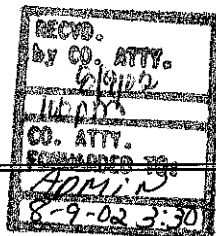 RECVD.
by CO. ATTY.
CO. ATTY.
FORWARDED TO:
ADMIN
8-9-02 3:30